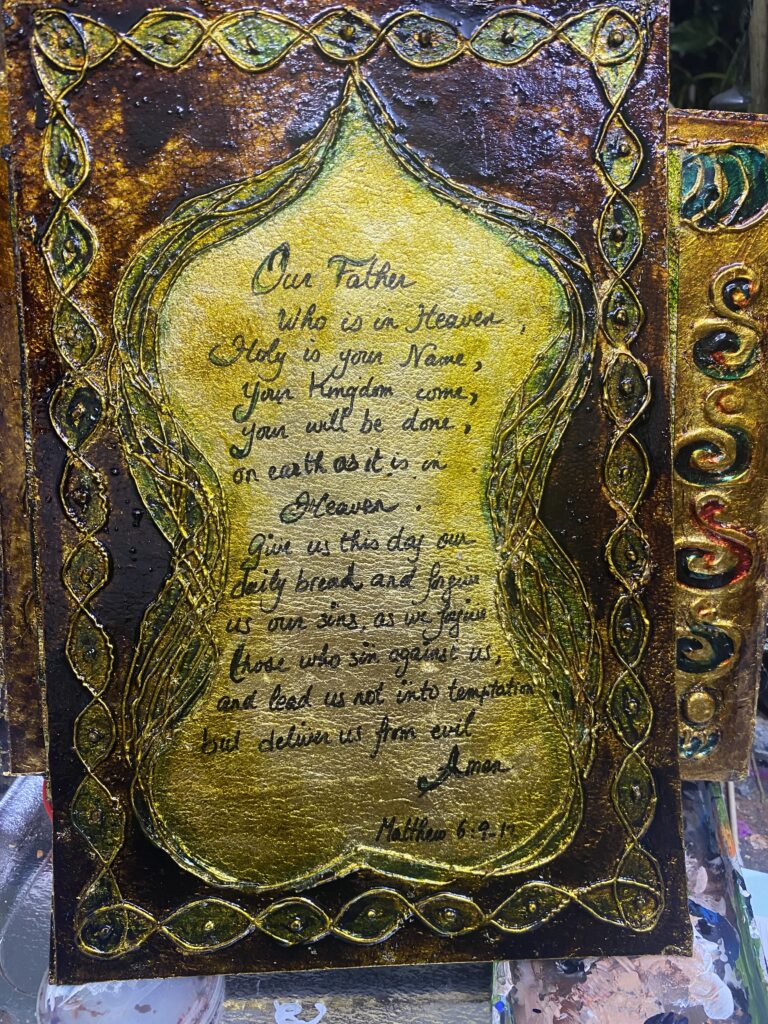 Our Father
Who is in Heaven,
Holy is your Name,
your Kingdom come,
your will be done,
on earth as it is in
Heaven.
Give us this day our
daily bread, and forgive
us our sins, as we forgive
those who sin against us,
and lead us not into temptation
but deliver us from evil
Amen
Matthew 6:9-